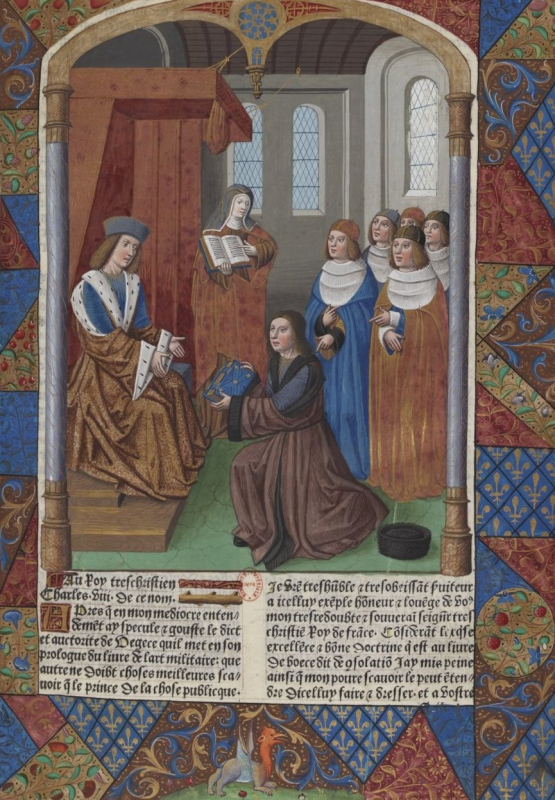 Au Roy treschristien
Charles. viii. de ce nom.
Apres q̄ en mon mediocre enten
demēt ay specule ⁊ gouste le dict
et auctorite de Vegece quil met en son
prologue du liure de lart militaire: que
autre ne doibt choses meilleures sca
uoir q̄ le prince de la chose publicque.
Je Vr̄e treshūble ⁊ tresobeissāt
a icelluy exēple hōneur ⁊ louēge de vo⁹
mon tresredoubte ⁊ souueraī seignr̄ tres
christiē Roy de frāce. Cōsiderāt
excellēce ⁊ bōne doctrine q̄ est au liure
de boece dit de ꝯsolatiō Jay mis peine
ainsi q̄ mon poure scauoir le peut ēten
dre dicelluy faire ⁊ dresser. et a vostre